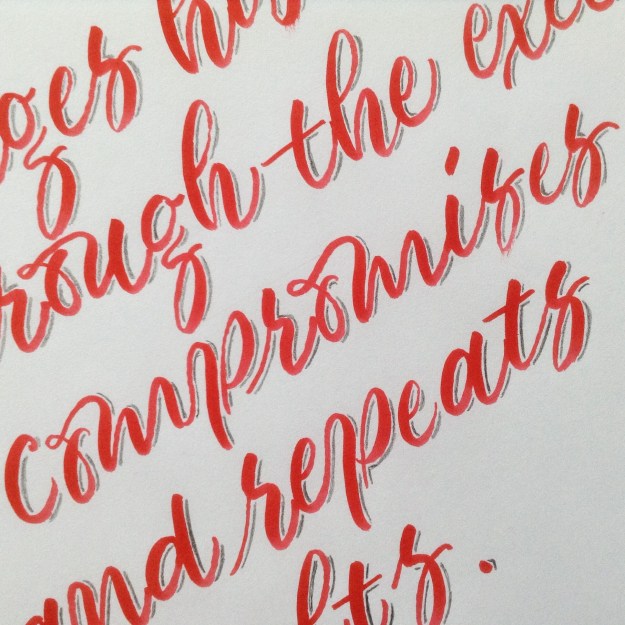 ges hi
rough the exce
compromises
and repeats
lts.